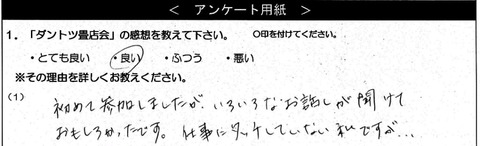 < アンケート用紙 >
1．「ダントツ畳店会」の感想を教えて下さい。 ○印を付けてください。
・とても良い ・良い ・ふつう ・悪い
※その理由を詳しくお教えください。
(1)
初めて参加しましたが、いろいろなお話しが聞けて
おもしろかったです。仕事にタッチしていない私ですが…